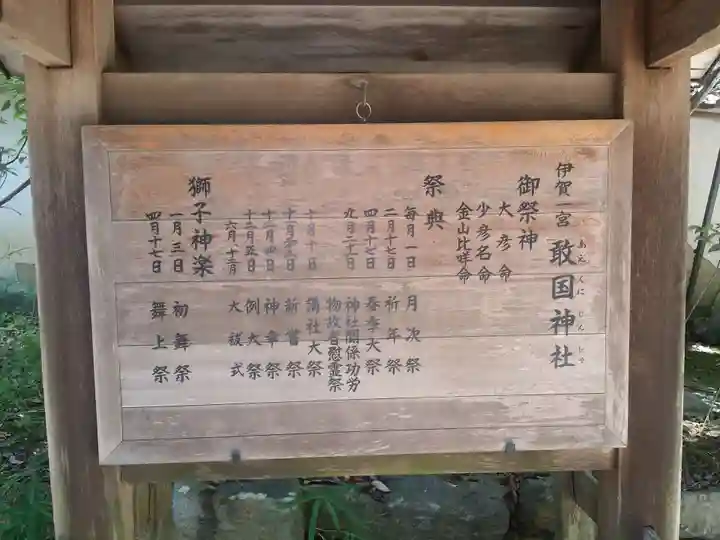 伊賀一宮 敢国神社
あえくにじんじゃ
御祭神
大彦命
少彦名命
金山比咩命
祭典
毎月一日 月次祭
二月十七日 祈年祭
四月十七日 春季大祭
九月二十二日 神社関係功労
物故者慰霊祭
十月十日 摂社大祭
新嘗祭
神幸祭
十二月五日 例大祭
六月十二月 大祓式
獅子神楽
一月三日 初舞祭
四月十七日 舞上祭